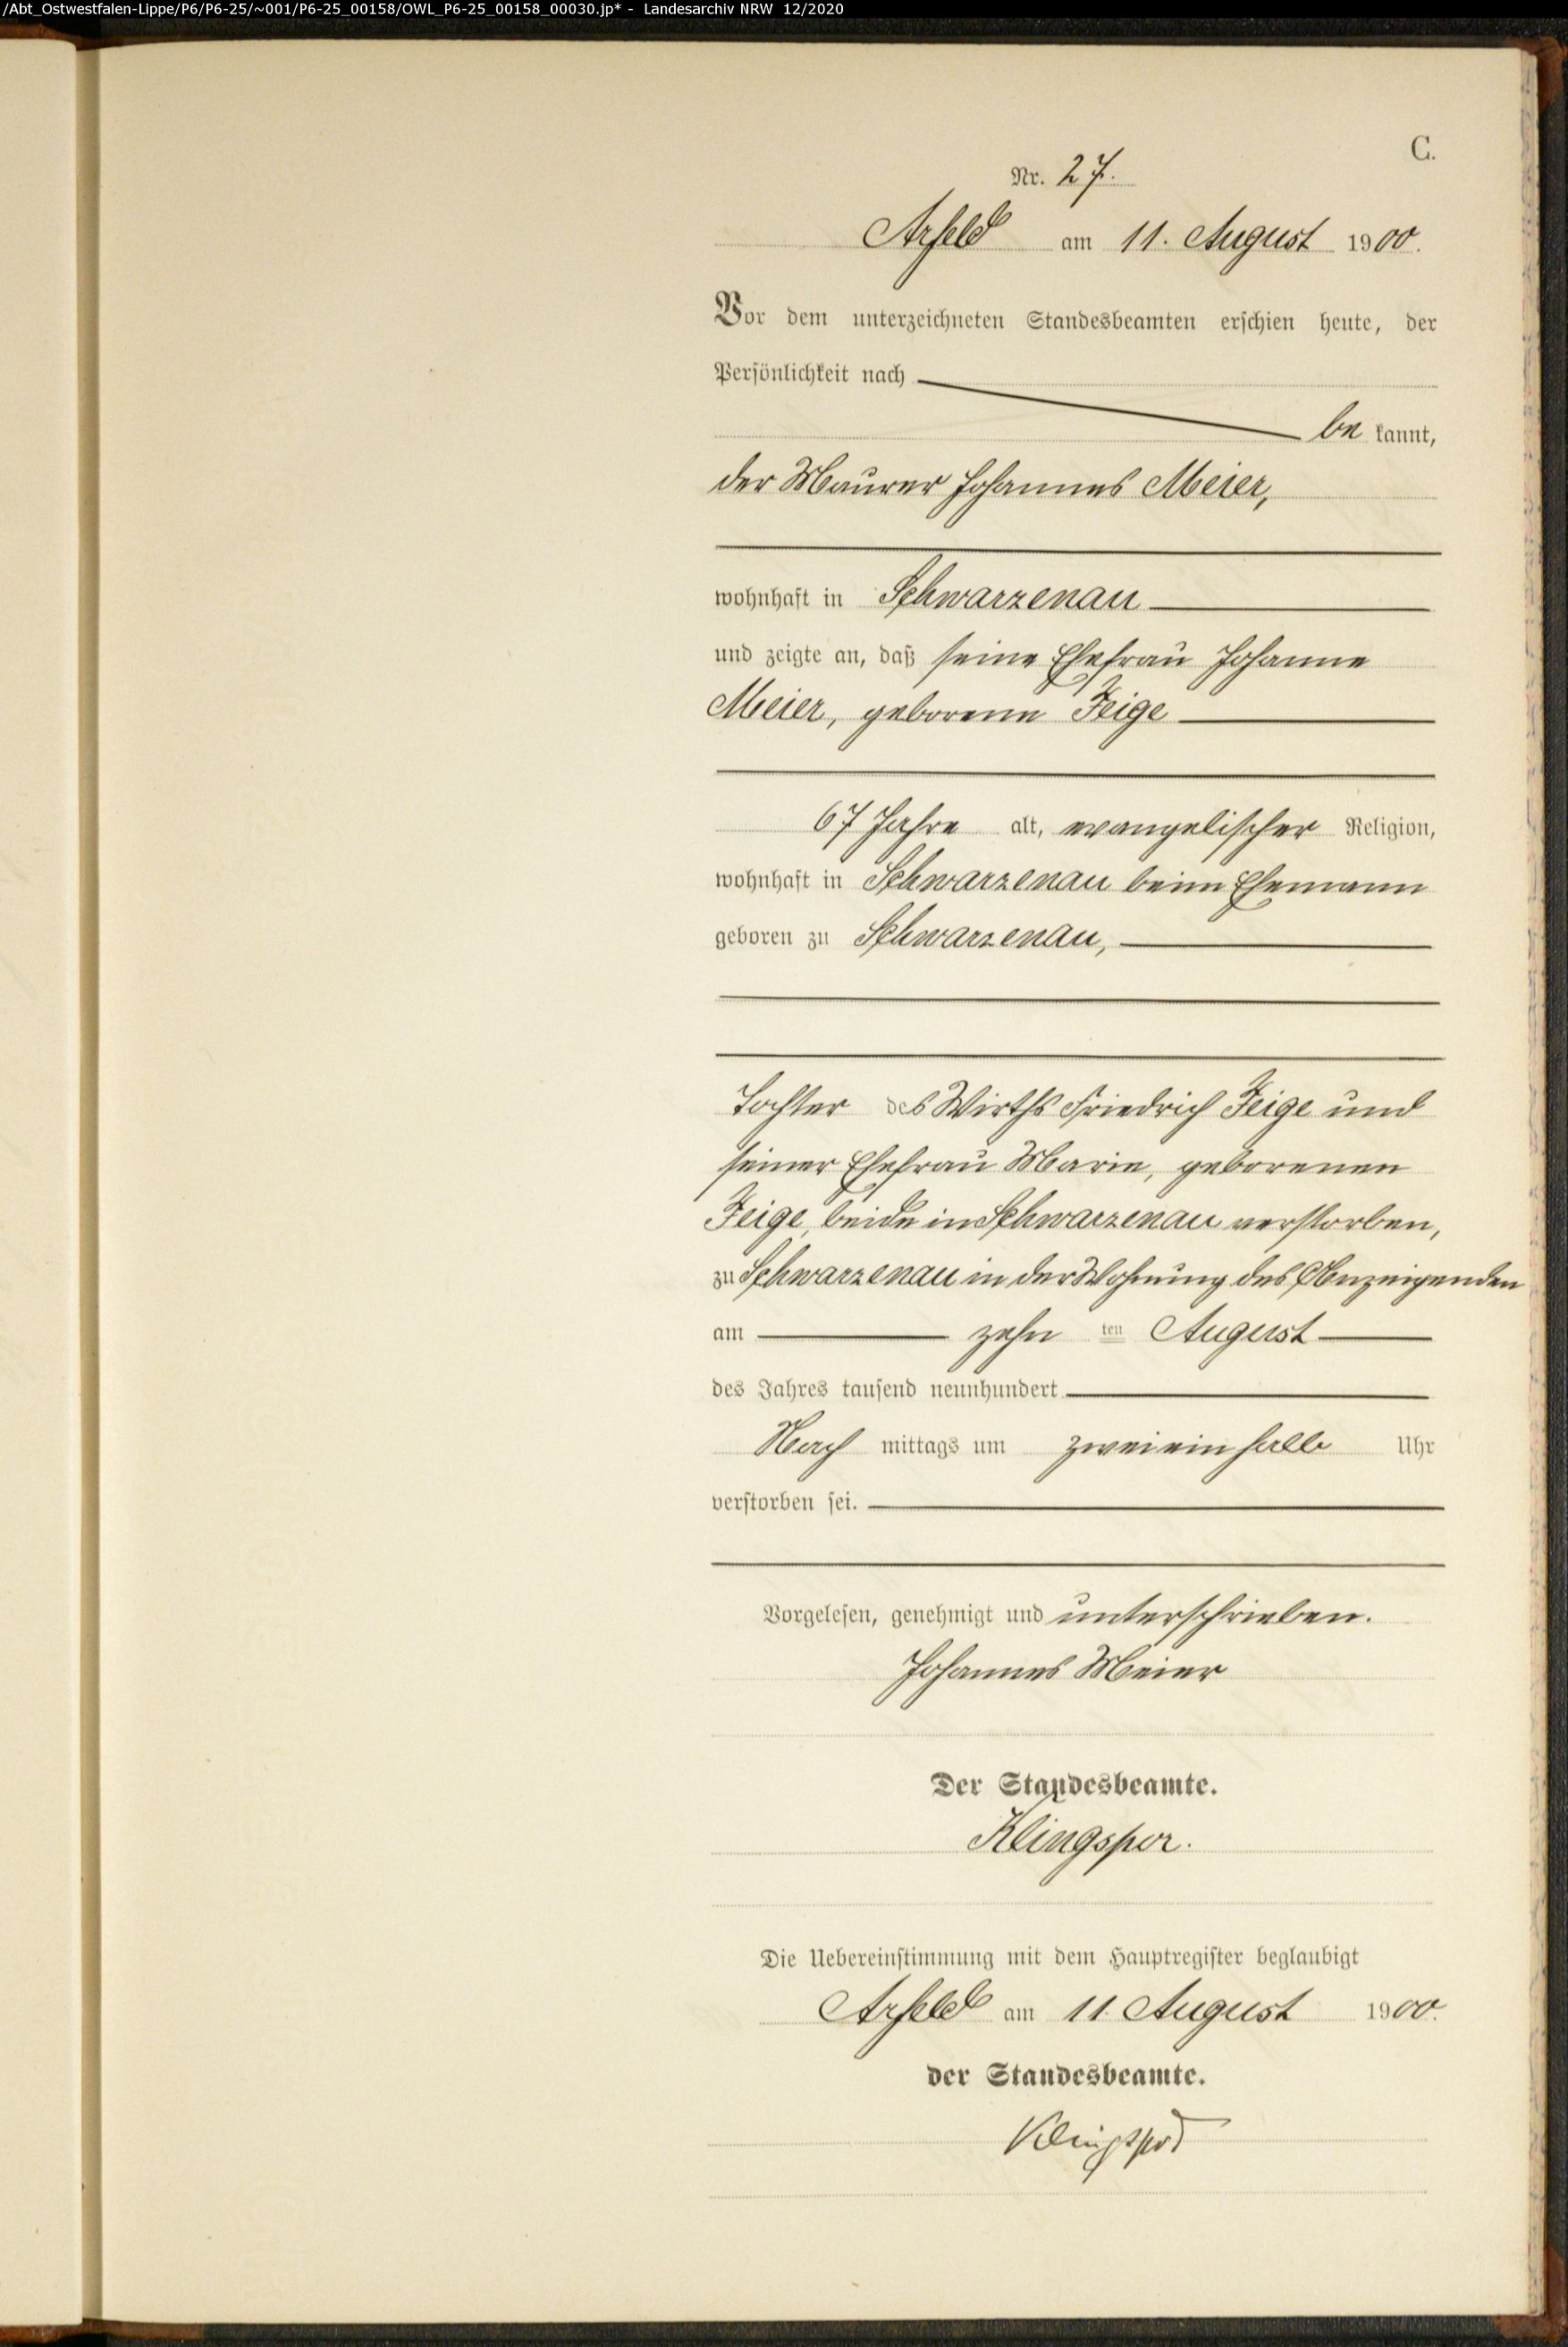 /Abt_Ostwestfalen-Lippe/P6/P6-25/~001/P6-25_00158/OWL_P6-25_00158_00030.jp* - Landesarchiv NRW 12/2020
C.
Nr. 27.
Arfeld am 11. August 1900.
Vor dem unterzeichneten Standesbeamten erschien heute, der
Persönlichkeit nach
be kannt,
der Maurer Johannes Meier,
wohnhaft in Schwarzenau
und zeigte an, daß seine Ehefrau Johanne
Meier, geborene Feige
67 Jahre alt, evangelischer Religion,
wohnhaft in Schwarzenau beim Ehemann
geboren zu Schwarzenau,
Tochter des Wirths Friedrich Feige und
seiner Ehefrau Marie, geborenen
Feige, beide in Schwarzenau verstorben,
zu Schwarzenau in der Wohnung des Anzeigenden
am zehn ten August
des Jahres tausend neunhundert
Nach mittags um zweieinhalb Uhr
verstorben sei.
Vorgelesen, genehmigt und unterschrieben.
Johannes Meier
Der Standesbeamte.
Klingspor.
Die Uebereinstimmung mit dem Hauptregister beglaubigt
Arfeld am 11. August 1900.
der Standesbeamte.
Klingspor